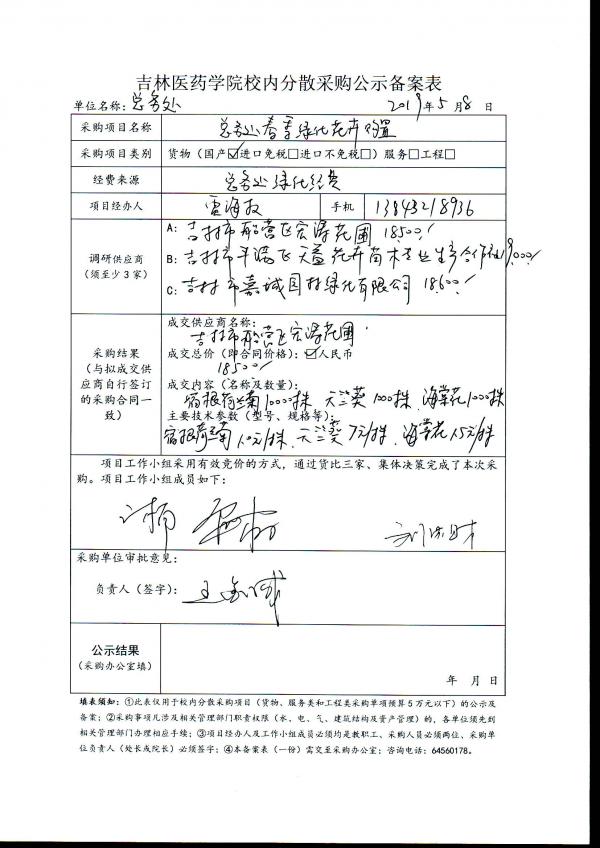 吉林医药学院校内分散采购公示备案表
单位名称：总务处 2019年5月8日
采购项目名称 总务处春季绿化花卉购置
采购项目类别 货物（国产☑进口免税□进口不免税□）服务□工程□
经费来源 总务处绿化经费
项目经办人 手机 13843218936
调研供应商
（须至少3家）
A：吉林市船营区宏涛花圃 18500/
B：吉林市丰满区天益花卉苗木专业生产合作社19000/
C：吉林市嘉诚园林绿化有限公司 18600/
采购结果
（与拟成交供
应商自行签订
的采购合同一
致）
成交供应商名称：
吉林市船营区宏涛花圃
成交总价（即合同价格）：☑人民币
18500/
成交内容（名称及数量）：
宿根荷兰菊10000株 天竺葵1000株、海棠花1000株
主要技术参数（型号、规格等）：
宿根荷兰菊1.0元/株、天竺葵7元/株、海棠花1.5元/株
项目工作小组采用有效竞价的方式，通过货比三家、集体决策完成了本次采
购。项目工作小组成员如下：
采购单位审批意见：
负责人（签字）：
公示结果
（采购办公室填）
年 月 日
填表须知：①此表仅用于校内分散采购项目（货物、服务类和工程类采购单项预算5万元以下）的公示及
备案；②采购事项凡涉及相关管理部门职责权限（水、电、气、建筑结构及资产管理）的，各单位须先到
相关管理部门办理相应手续；③项目经办人及工作小组成员必须均是教职工、采购人员必须两位、采购单
位负责人（处长或院长）必须签字；④本备案表（一份）需交至采购办公室；咨询电话：64560178。